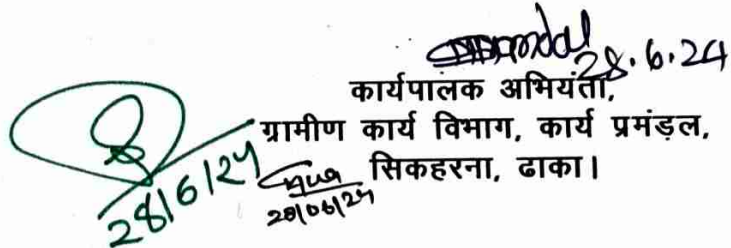 28.6.24
कार्यपालक अभियंता,
ग्रामीण कार्य विभाग, कार्य प्रमंड़ल,
सिकहरना, ढाका।
28/6/24
28/06/24